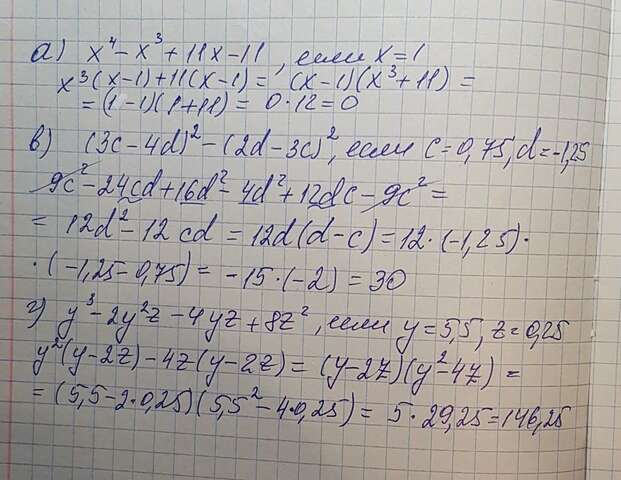 а) x⁴ - x³ + 11x - 11, если x = 1
x³(x-1) + 11(x-1) = (x-1)(x³+11) =
= (1-1)(1+11) = 0·12 = 0
в) (3c - 4d)² - (2d - 3c)², если c = 0,75, d = -1,25
9c² - 24cd + 16d² - 4d² + 12dc - 9c² =
= 12d² - 12cd = 12d(d-c) = 12·(-1,25)·
·(-1,25 - 0,75) = -15·(-2) = 30
г) y³ - 2y²z - 4yz + 8z², если y = 5,5, z = 0,25
y²(y-2z) - 4z(y-2z) = (y-2z)(y²-4z) =
= (5,5 - 2·0,25)(5,5² - 4·0,25) = 5·29,25 = 146,25